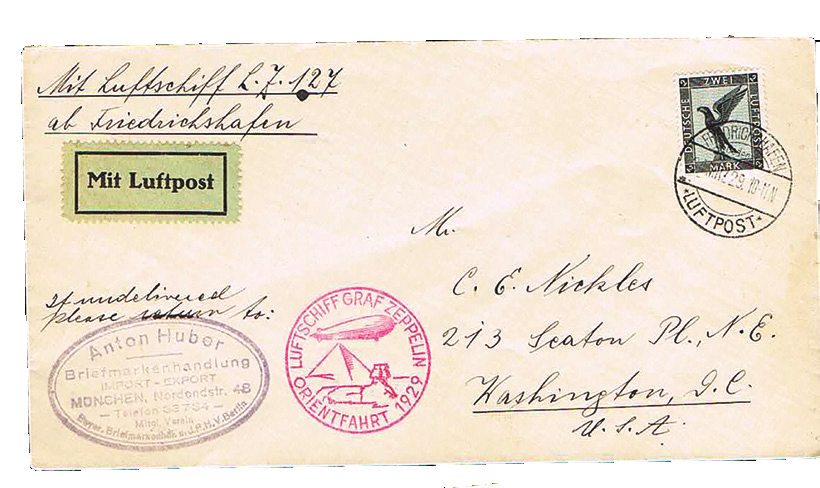 Mit Luftschiff L. Z. 127
ab Friedrichshafen
Mit Luftpost
DEUTSCHE
ZWEI
LUFTPOST
MARK
FRIEDRICHSHAFEN
29. 10-11 N
*LUFTPOST*
Mr.
C. E. Nickles
213 Seaton Pl., N.E.
Washington, D.C.
U.S.A.
If undelivered
please return to:
Anton Huber
Briefmarkenhandlung
IMPORT - EXPORT
MÜNCHEN, Nordendstr. 48
— Telefon —
Mitgl. Verein
Bayer. Briefmarkenhdl. u. I.P.H.V. Berlin
LUFTSCHIFF GRAF ZEPPELIN
ORIENTFAHRT 1929